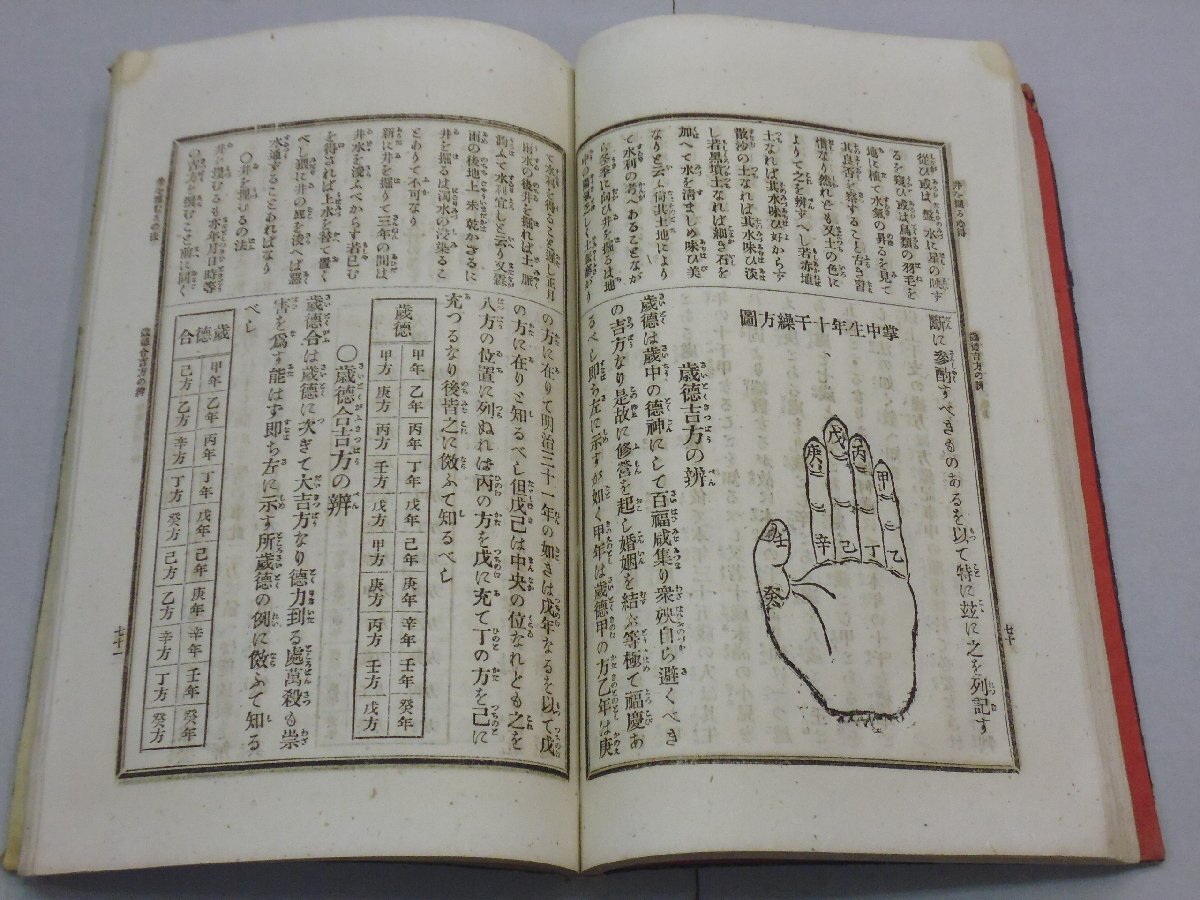 井を掘る心得
從ひ或は盤水に星の映す
るを窺ひ或は鳥類の羽毛を
地に植て水氣の昇るを見て
其良否を察すること古き習
慣なり然れども又土の色に
よりて之を辨ずべし若赤埴
土なれば其水味ひ好からず
散沙の土なれば其水味ひ淡
し若黒墳土なれば細き石を
加へて水を清ましめ味ひ美
なりと云ふ尚其土地により
て水利の考へあることなが
ら冬季に向ひ井を掘るは地
歲德吉方の辨
斷に參酌すべきものあるを以て特に玆に之を列記す
掌中生年十干繰方圖
甲
乙
丙
丁
戊
己
庚
辛
壬
癸
歲德吉方の辨
歲德は歲中の德神にして百福咸集り衆殃自ら避くべき
の吉方なり是故に修營を起し婚姻を結ぶ等極て福慶あ
るべし即ち左に示すが如く甲年は歲德甲の方乙年は庚
七十
て水利を得ること難し正月
雨水の後井を掘れば土脈
潤ふて水利宜しと云り又霖
雨の後地上未乾かざるに
井を掘るは濁水の浸染るこ
とありて不可なり
新に井を掘りて三年の間は
井水を浚ふべからず若已む
を得ざれば上水を替て置く
べし猥に井の底を浚へば惡
水通ずることあればなり
〇井を埋むるの法
井を埋むるも亦年月日時等
井を埋むるの法
の方に在りて明治三十一年の如きは戊年なるを以て戊
の方に在りと知るべし但戊己は中央の位なれども之を
八方の位置に列ぬれば丙の方を戊に充て丁の方を己に
充つるなり後皆之に倣ふて知るべし
歲德
甲年 乙年 丙年 丁年 戊年 己年 庚年 辛年 壬年 癸年
甲方 庚方 丙方 壬方 戊方 甲方 庚方 丙方 壬方 戊方
〇歲德合吉方の辨
歲德合は歲德に次ぎて大吉方なり德力到る處萬殺も崇
害を爲す能はず即ち左に示す所歲德の例に倣ふて知る
べし
歲德合
甲年 乙年 丙年 丁年 戊年 己年 庚年 辛年 壬年 癸年
己方 乙方 辛方 丁方 癸方 己方 乙方 辛方 丁方 癸方
歲德合吉方の辨
七十一